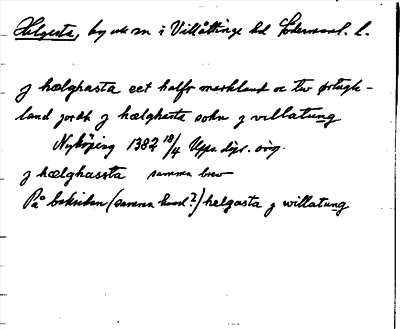 Helgesta, by och sn i Villåttinge hd Södermanl. l.
j hælghasta eet halfft markland oc tw ørtugh-
land jordh j hælghasta sokn j villatung
Nyköping 1382 18/4 Upps. dipl. orig.
j hælghassta samma brev
På baksidan (samma hand?) helgasta j willatung